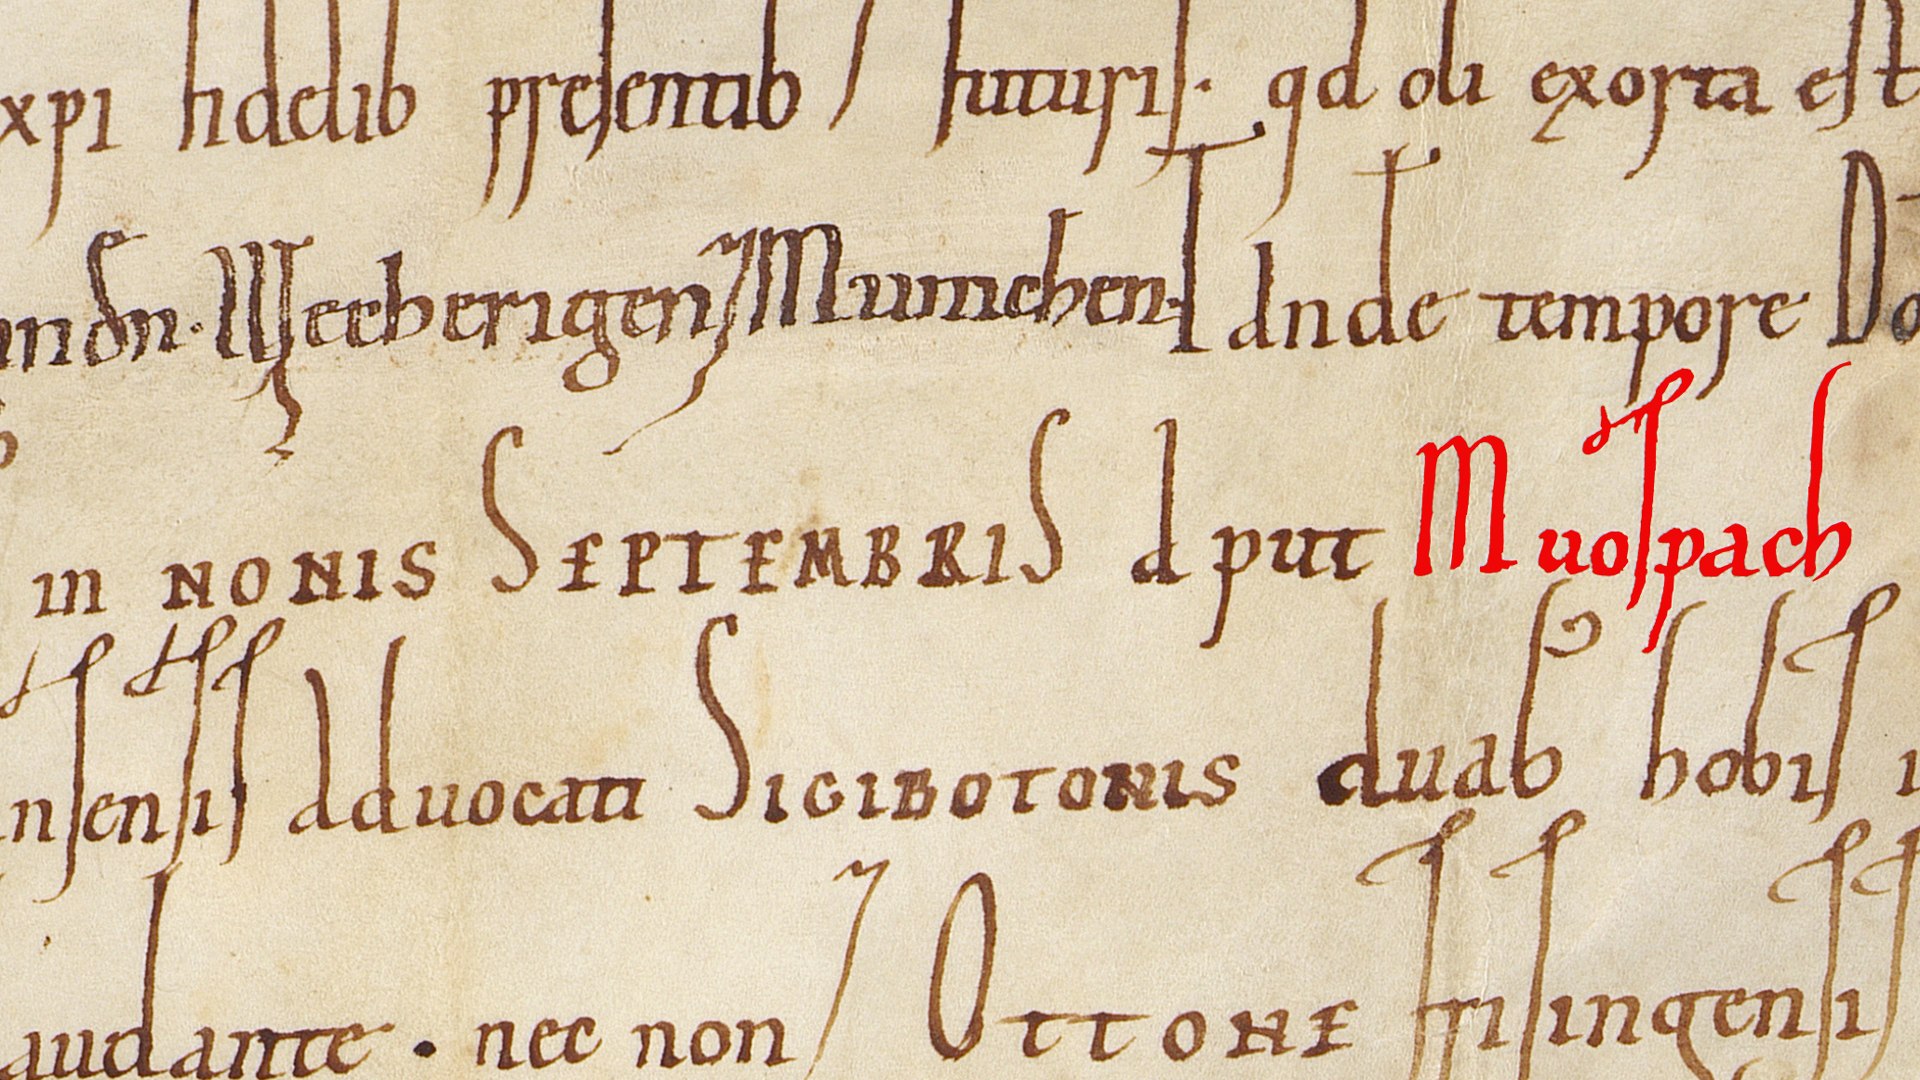 xpi fidelib presentib / futuris. qd oli exorta est
undn. Weeberigen / Munichen. Tande tempore
in NONIS SEPTEMBRIS aput Muospach
nsensis aduocati SIGIBOTONIS duab hobis
audante. nec non OTTONE frisingensis